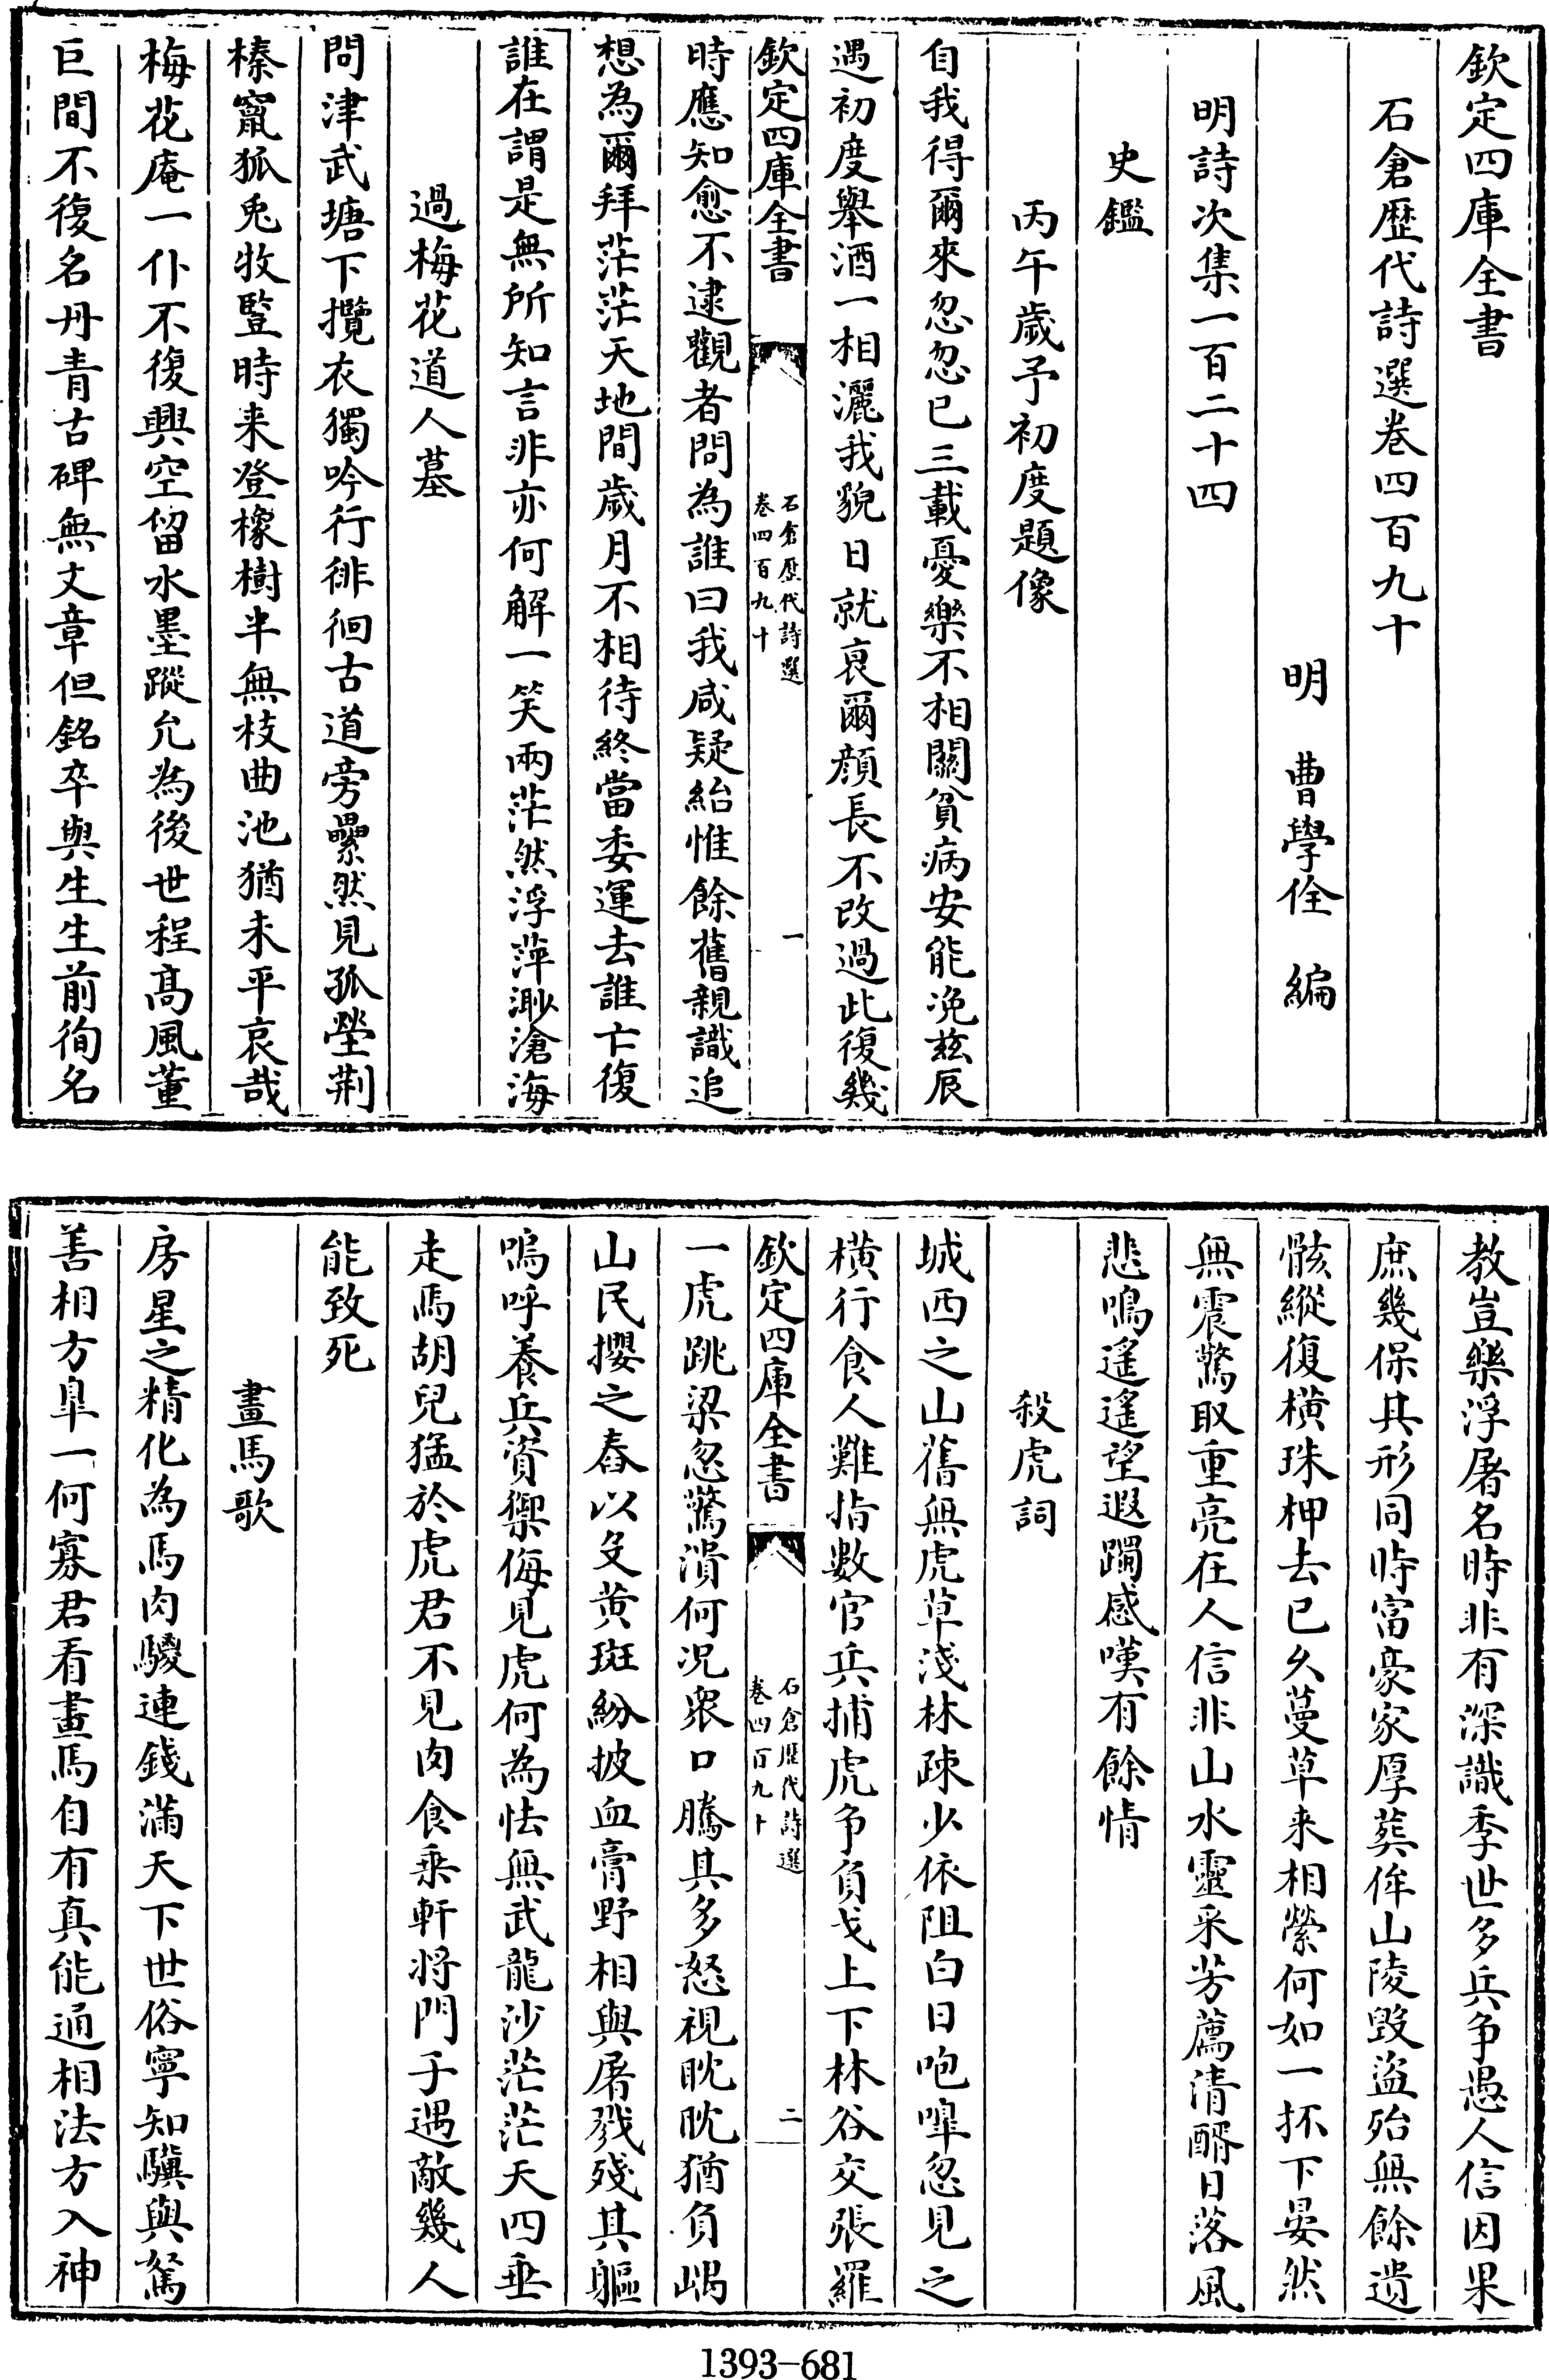 欽定四庫全書
石倉歷代詩選卷四百九十
明　曹學佺　編
明詩次集一百二十四
史鑑
丙午歲予初度題像
自我得爾來忽忽已三載憂樂不相關貧病安能浼兹辰
遇初度舉酒一相灑我貌日就衰爾顔長不改過此復幾
欽定四庫全書
石倉歷代詩選
卷四百九十
一
時應知愈不逮觀者問為誰曰我咸疑紿惟餘舊親識追
想為爾拜茫茫天地間歲月不相待終當委運去誰亡復
誰在謂是無所知言非亦何解一笑兩茫然浮萍渺滄海
過梅花道人墓
問津武塘下攬衣獨吟行徘徊古道旁纍然見孤塋荆
榛竄狐兎牧豎時来登橡樹半無枝曲池猶未平哀哉
梅花庵一仆不復興空留水墨蹤允為後世程髙風董
巨間不復名丹青古碑無文章但銘卒與生生前徇名
教豈樂浮屠名時非有深識季世多兵争愚人信因果
庶幾保其形同時富豪家厚葬侔山陵毁盗殆無餘遺
骸縱復横珠柙去已久蔓草来相縈何如一抔下晏然
無震驚取重亮在人信非山水靈采芳薦清醑日落風
悲鳴遥遥望遐躅感嘆有餘情
殺虎詞
城西之山舊無虎草淺林疎少依阻白日咆嘷忽見之
横行食人難指數官兵捕虎争負戈上下林谷交張羅
欽定四庫全書
石倉歷代詩選
卷四百九十
二
一虎跳梁忽驚潰何況衆口騰其多怒視眈眈猶負嵎
山民攖之舂以殳黄斑紛披血膏野相與屠戮殘其軀
嗚呼養兵資禦侮見虎何為怯無武龍沙茫茫天四垂
走馬胡兒猛於虎君不見肉食乗軒将門子遇敵幾人
能致死
畫馬歌
房星之精化為馬肉騣連錢滿天下世俗寧知驥與駑
善相方臯一何寡君看畫馬自有真能通相法方入神
1393-681